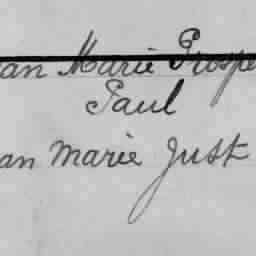 an Marie Prospe
Paul
an Marie Just